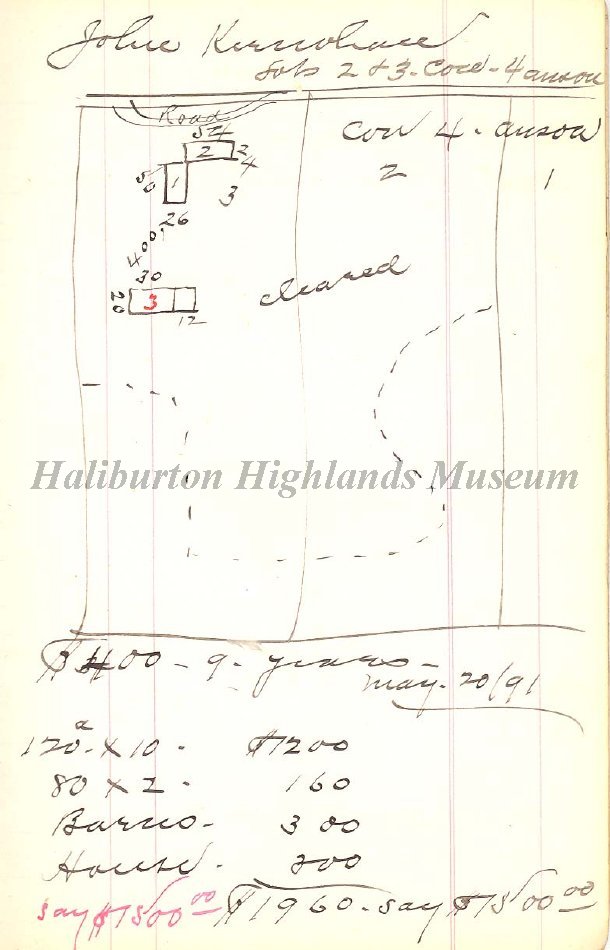 John Kernohan
Lots 2 & 3. Con - 4 anson
Road
54
2 2
4
50 1
3
26
400
30
20 3
12
Con 4 - anson
2 1
cleared
Haliburton Highlands Museum
$400 - 9 - years -
may - 20/91
120 a - x 10 - $1200
80 x 2 - 160
Barns - 300
House - 300
$1960 - say $1500 00
say $1500 00